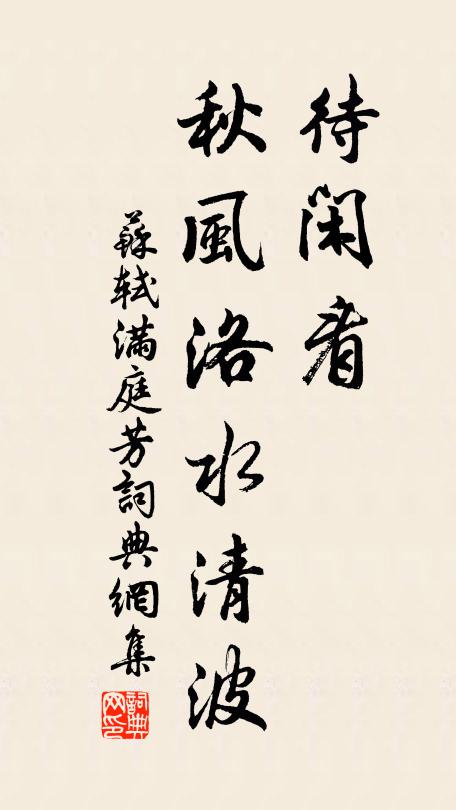 待閑看
秋風洛水清波
蘇軾滿庭芳詞典網集
詞典網印